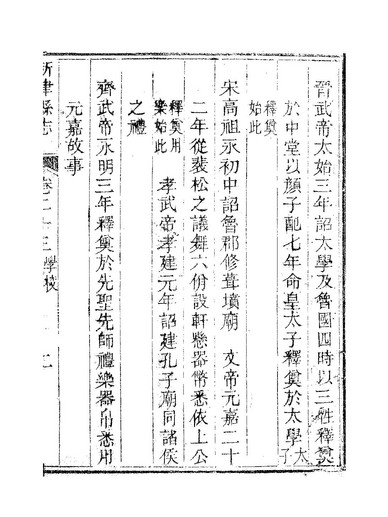 晉武帝太始三年詔太學及魯國四時以三牲釋奠
於中堂以顏子配七年命皇太子釋奠於太學太子
釋奠始此
宋高祖永初中詔魯郡修葺墳廟　文帝元嘉二十
二年從裴松之議舞六佾設軒懸器幣悉依上公
釋奠用樂始此　孝武帝孝建元年詔建孔子廟同諸侯
之禮
齊武帝永明三年釋奠於先聖先師禮樂器帛悉用
元嘉故事
新津縣志　卷二十三　學校